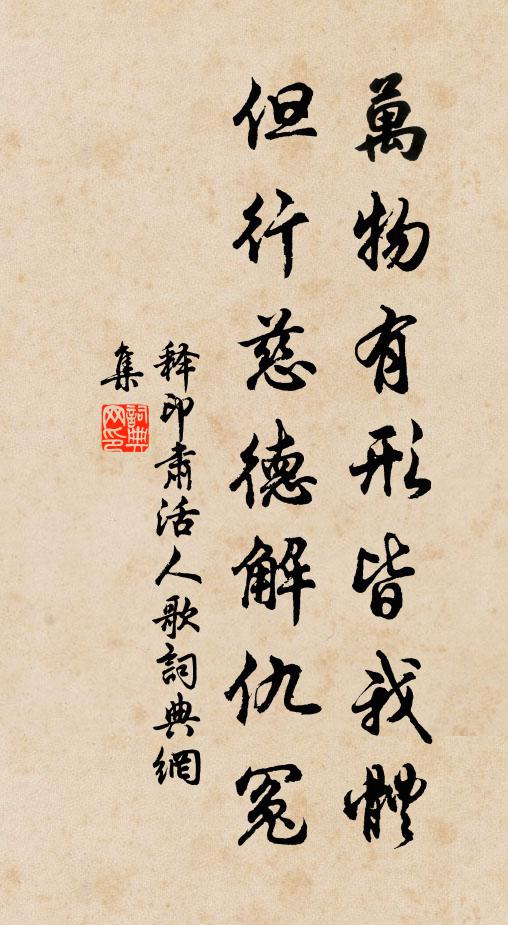 萬物有形皆我體
但行慈德解仇冤
释印肃活人歌詞典網
集
詞典网印